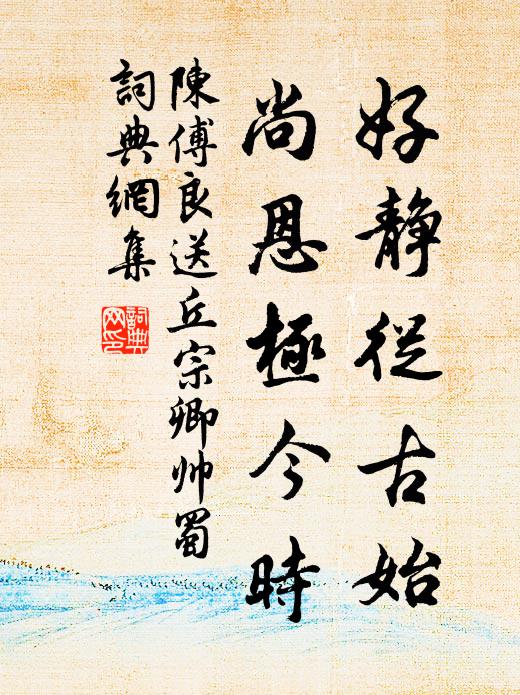 好静從古始
尚恩極今時
陳傅良送丘宗卿帅蜀
詞典網集
詞典网印